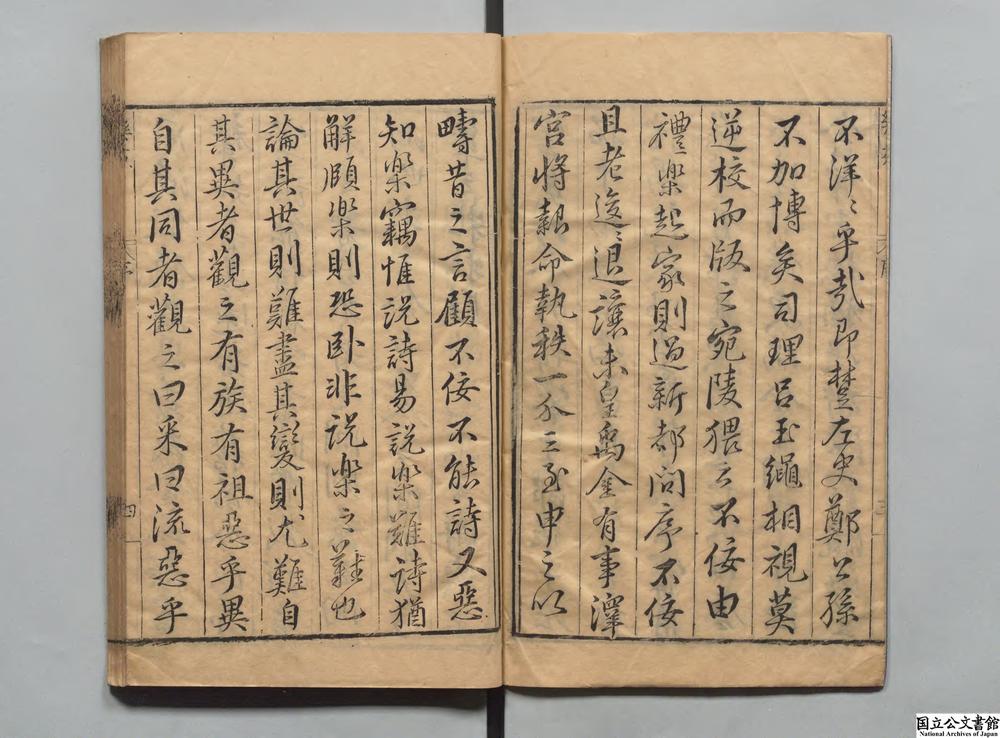 不洋〻乎哉即楚左史鄭公孫
不加博矣司理呂玉繩相視莫
逆校而版之宛陵猥云不佞由
禮樂起家則過新都問序不佞
且老逡〻退讓未皇禹金有事澤
宮將報命執秩一介三至申之以
疇昔之言顧不佞不能詩又惡
知樂竊惟説詩易説樂難詩猶
解頤樂則恐卧非説樂之難也
論其世則難盡其變則尤難自
其異者觀之有族有祖惡乎異
自其同者觀之曰采曰流惡乎
四
国立公文書館
National Archives of Japan